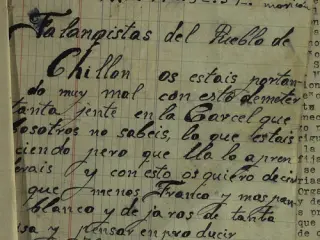 Falangistas del Pueblo de
Chillon os estais portan
do muy mal con esto de meter
tanta jente en la Carcel que
bosotros no sabeis, lo que estais
ciendo pero que lla lo apren
brais y con esto os quiero decir
que menos Franco y mas pan
blanco y dejaros de tanta
isa y pensar en producir